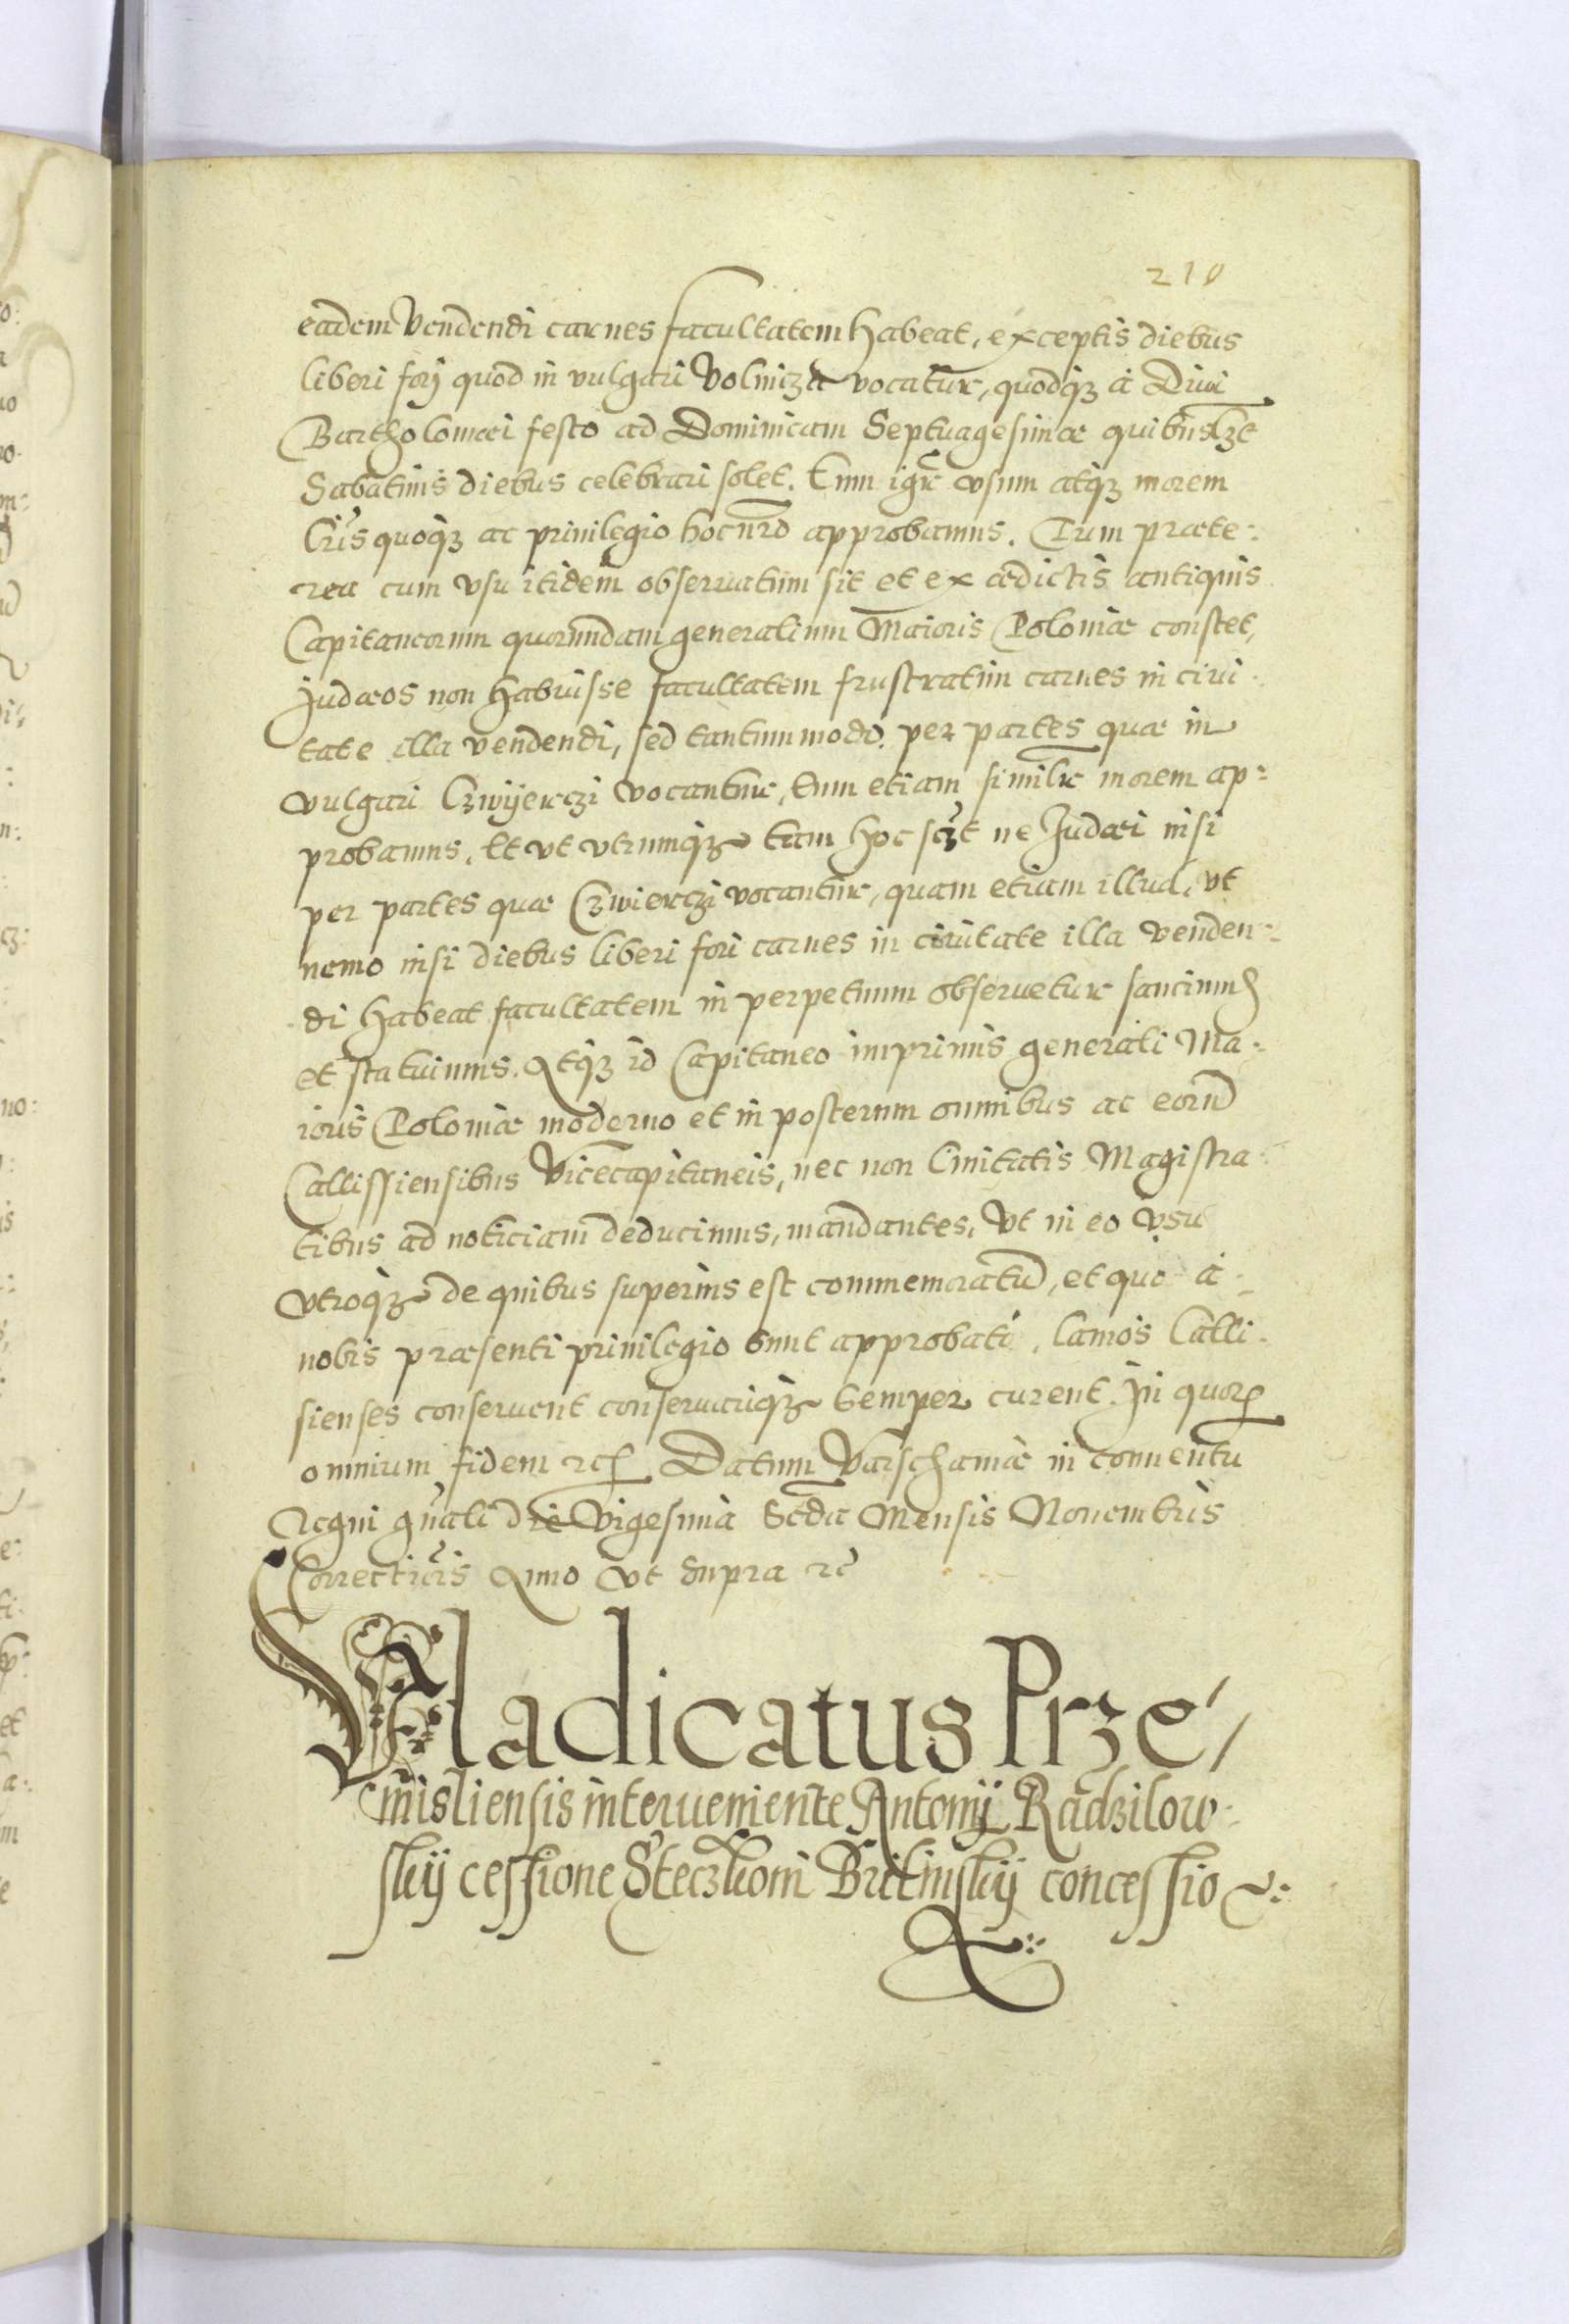 210
eadem Vendendi carnes facultatem habeat, exceptis diebus
liberi forj quod in vulgari Volnicza vocatur, quodqз à Diui
Bartholomæi festo ad Dominicam Septuagesimæ quibuslzt
Sabatinis diebus celebrari solet. Eum igr̃ vsum atqз morem
Lr̃is quoqз ac priuilegio hoc nr̃o approbamus. Tum præte:
rea cum vsu itidem obseruatum sit et ex ædictis antiquis
Capitaneorum quorundam generalium Maioris Poloniæ constet,
Judæos non habuisse facultatem frustratim carnes in ciui-
tate illa vendendi, sed tantummodo per partes quæ in
vulgari Czwijerczi vocantur, tum etiam similr̃ morem ap:
probamus, Et vt vtrumqз tam hoc sczt ne Judæi nisi
per partes quæ Czwierczi vocantur, quam etiam illud, vt
nemo nisi diebus liberi fori carnes in ciuitate illa venden:
di habeat facultatem in perpetuum obseruetur sancimus
et statuimus. Atqз id Capitaneo imprimis generali Ma:
ioris Poloniæ moderno et in posterum omnibus ac eorũ
Callissiensibus Vicecapitaneis, nec non Ciuitatis Magistra:
tibus ad noticiam deducimus, mandantes, Vt in eo vsu
vtroqз de quibus superius est commemoratũ, et quo à
nobis præsenti priuilegio sunt approbati, Lanios Calli-
sienses conseruent conseruariqз semper curent. In quorꝝ
omnium fidem etc. Datum Varschauiæ in conuentu
Regni gñali die Vigesima Scda Mensis Nouembris
Correctur̃is Anno vt supra etc
Vladicatus Prze/
misliensis interueniente Antonij Radzilow-
skij cessione Steczkoni Brilinskij concessio